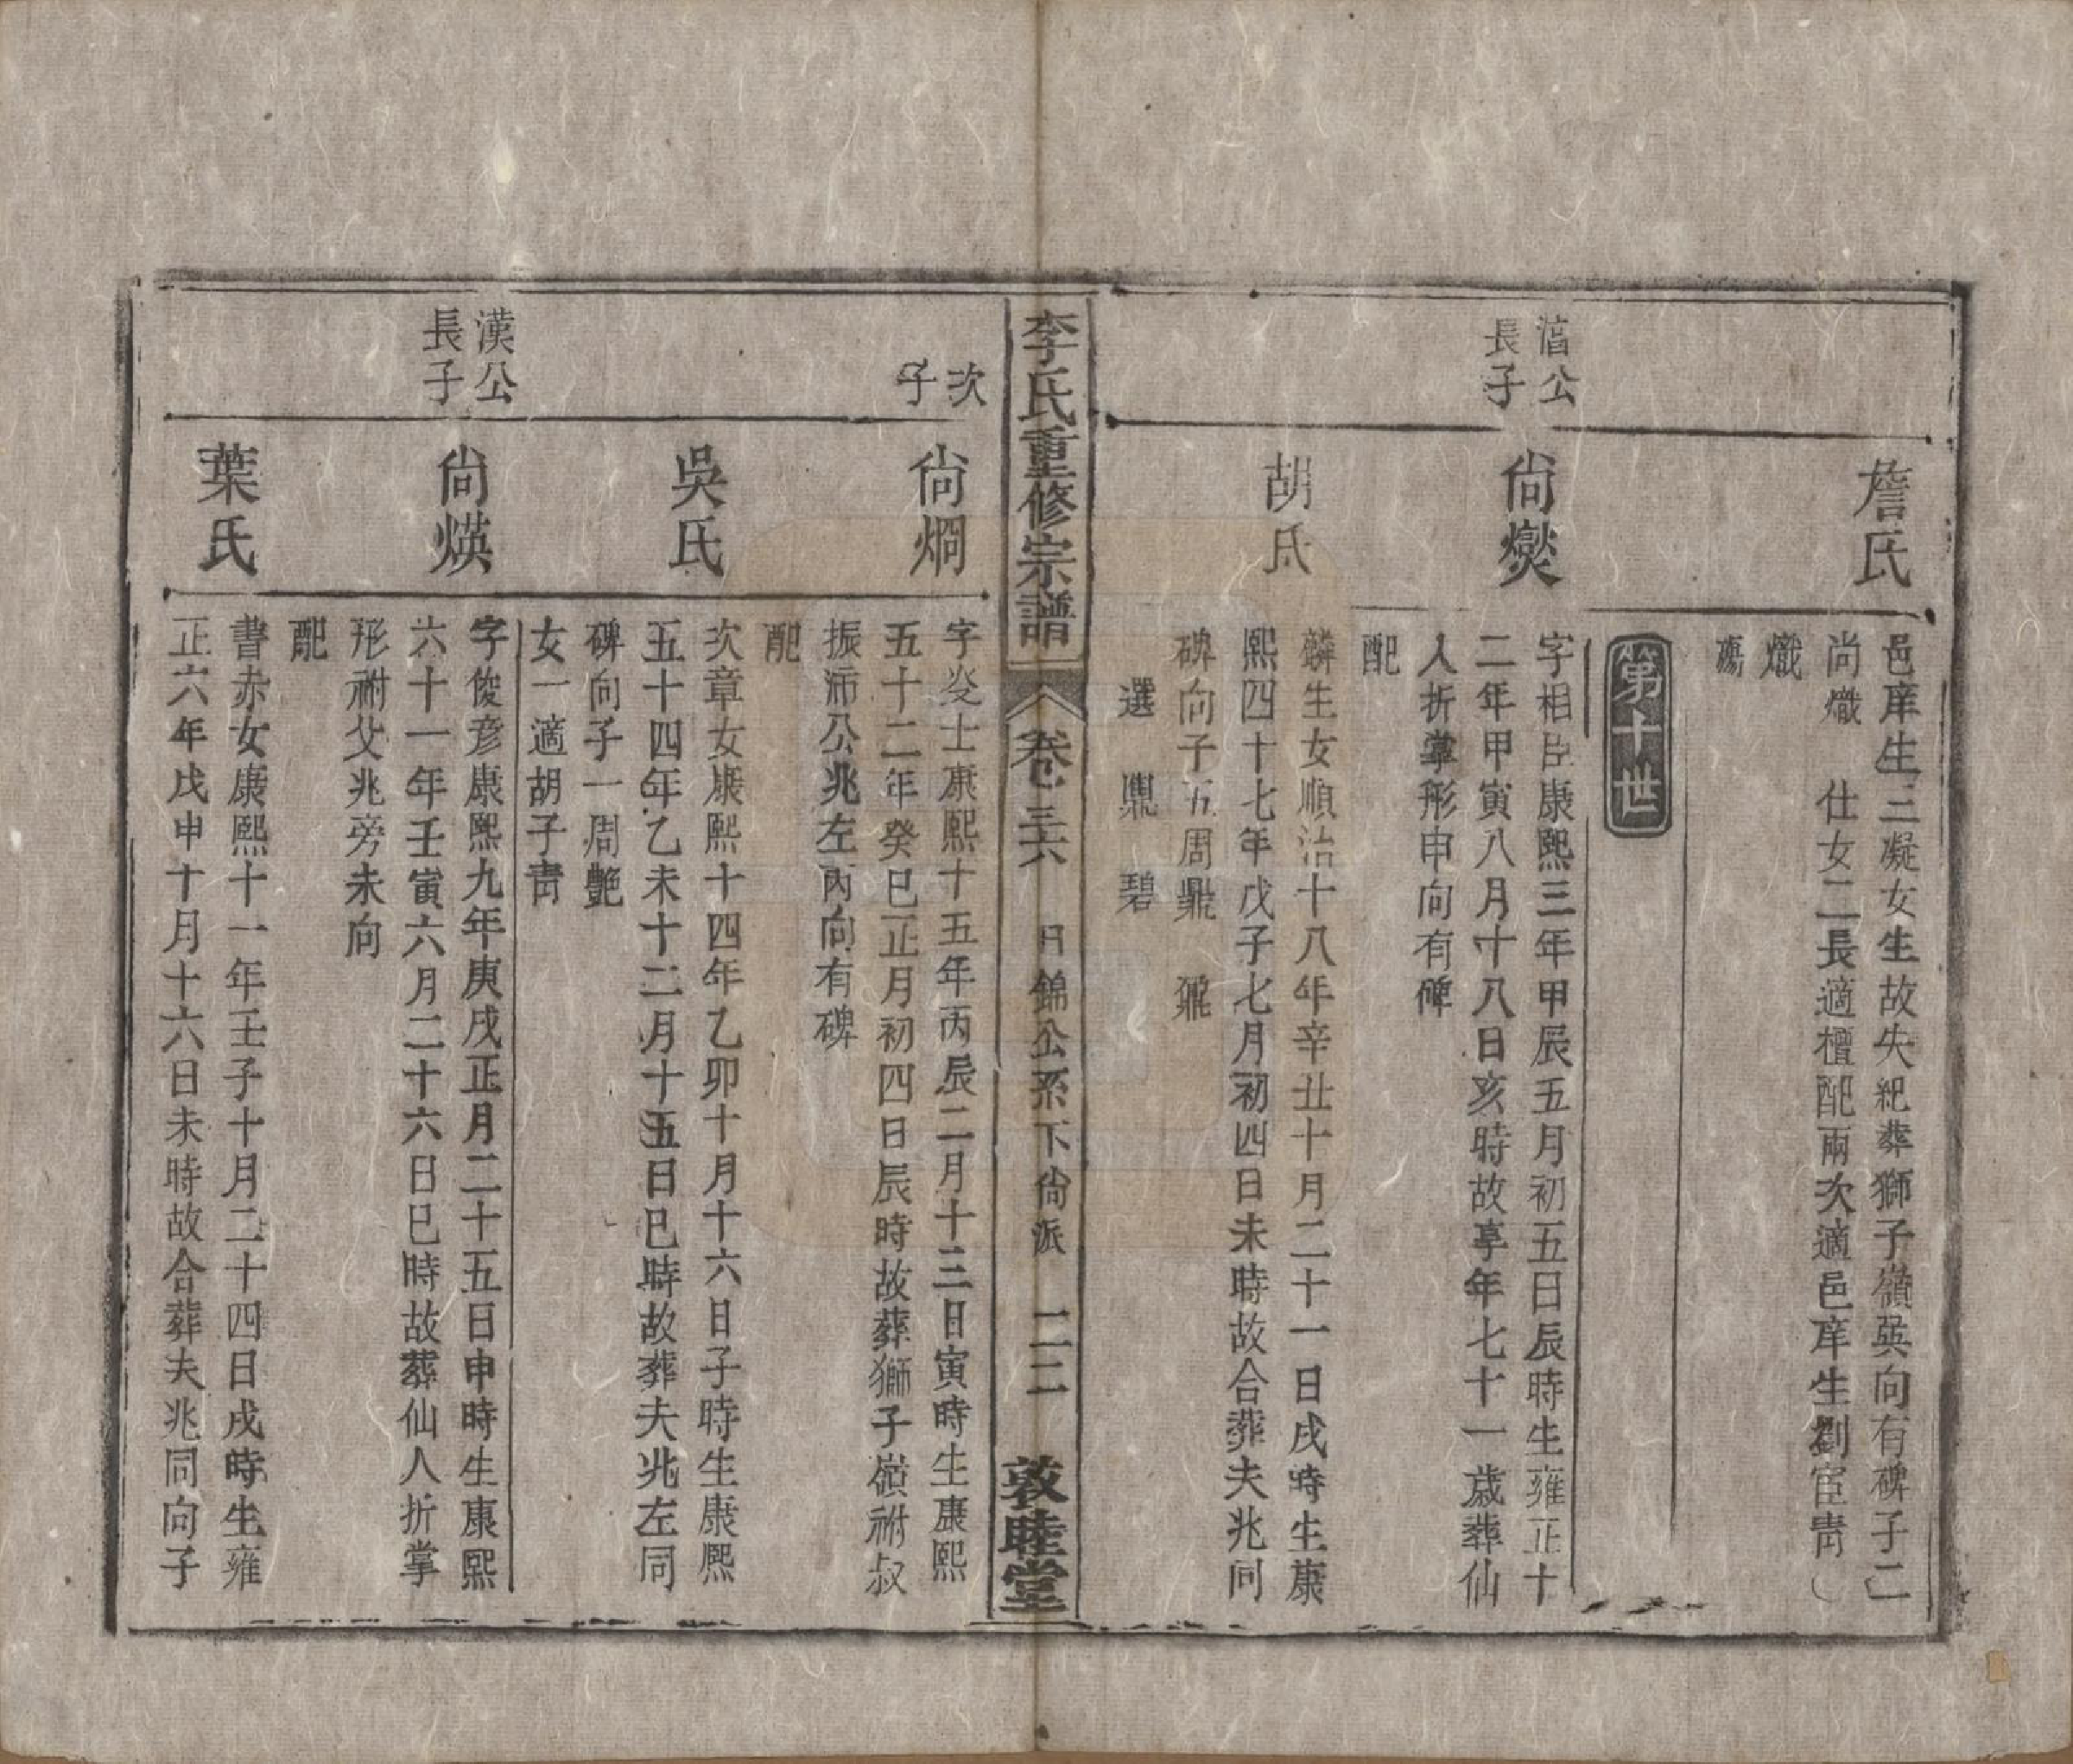 詹氏
邑庠生三凝女生故失紀葬獅子嶺巽向有碑子二
尚熾　仕女二長適檀配兩次適邑庠生劉宦靑
熾
殤
第十世
公
長子
尙爕
字相臣康熙三年甲辰五月初五日辰時生雍正十
二年甲寅八月十八日亥時故享年七十一歲葬仙
人折掌形申向有碑
配
胡氏
麟生女順治十八年辛丑十月二十一日戌時生康
熙四十七年戊子七月初四日未時故合葬夫兆同
碑向子五周鼎
選　鼎　碧
李氏重修宗譜　卷三六　日錦公系下尙派　二二　敦睦堂
次子
尙烱
字炎士康熙十五年丙辰二月十三日寅時生康熙
五十二年癸巳正月初四日辰時故葬獅子嶺祔叔
振沛公兆左丙向有碑
配
吳氏
次章女康熙十四年乙卯十月十六日子時生康熙
五十四年乙未十二月十五日巳時故葬夫兆左同
碑向子一周艷
女一適胡子靑
漢公
長子
尙煐
字俊彥康熙九年庚戌正月二十五日申時生康熙
六十一年壬寅六月二十六日巳時故葬仙人折掌
形祔父兆旁未向
配
葉氏
書赤女康熙十一年壬子十月二十四日戌時生雍
正六年戊申十月十六日未時故合葬夫兆同向子